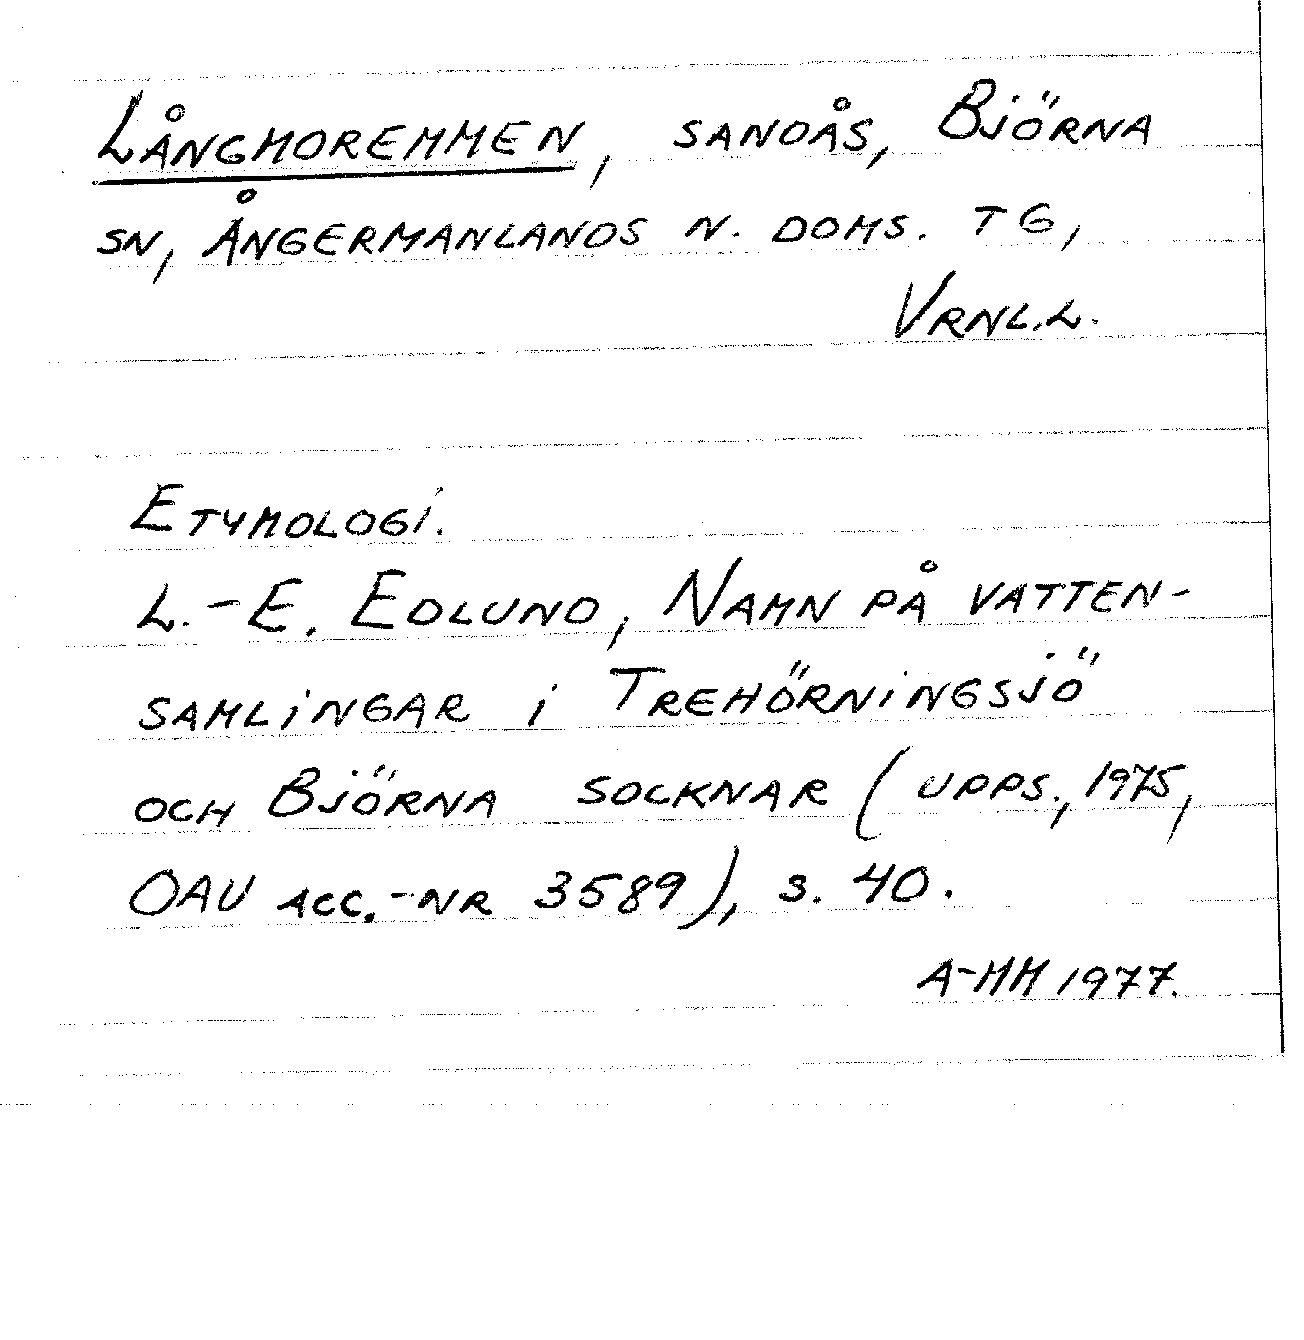 LÅNGMOREMMEN, SANDÅS, BJÖRNA
SN, ÅNGERMANLANDS N. DOMS. TG,
VRNL.L.
ETYMOLOGI.
L.-E. EDLUND, NAMN PÅ VATTEN-
SAMLINGAR I TREHÖRNINGSJÖ
OCH BJÖRNA SOCKNAR (UPPS., 1975,
OAU ACC.-NR 3589), S. 40.
A-MM 1977.